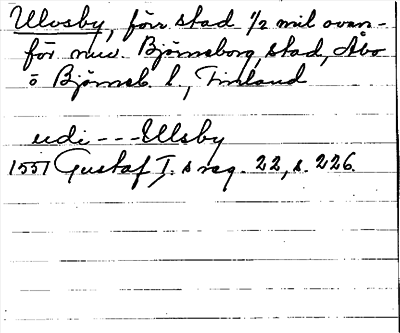 Ulvsby, förr stad 1/2 mil ovan-
för nuv. Björneborg, stad, Åbo
o Björneb. l., Finland
udi --- Ulsby
1557 Gustaf I. s reg. 22, s. 226.